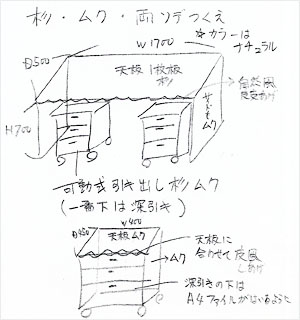 杉・ムク・両ソデつくえ
W1700
※カラーは
ナチュラル
D500
天板1枚板
杉
自然風
皮あり
H700
サイドもムク
可動式引き出し杉ムク
(一番下は深引き)
W400
D450
天板ムク
天板に
合わせて皮風
しあげ
ムク
深引きの下は
A4ファイルがはいるように